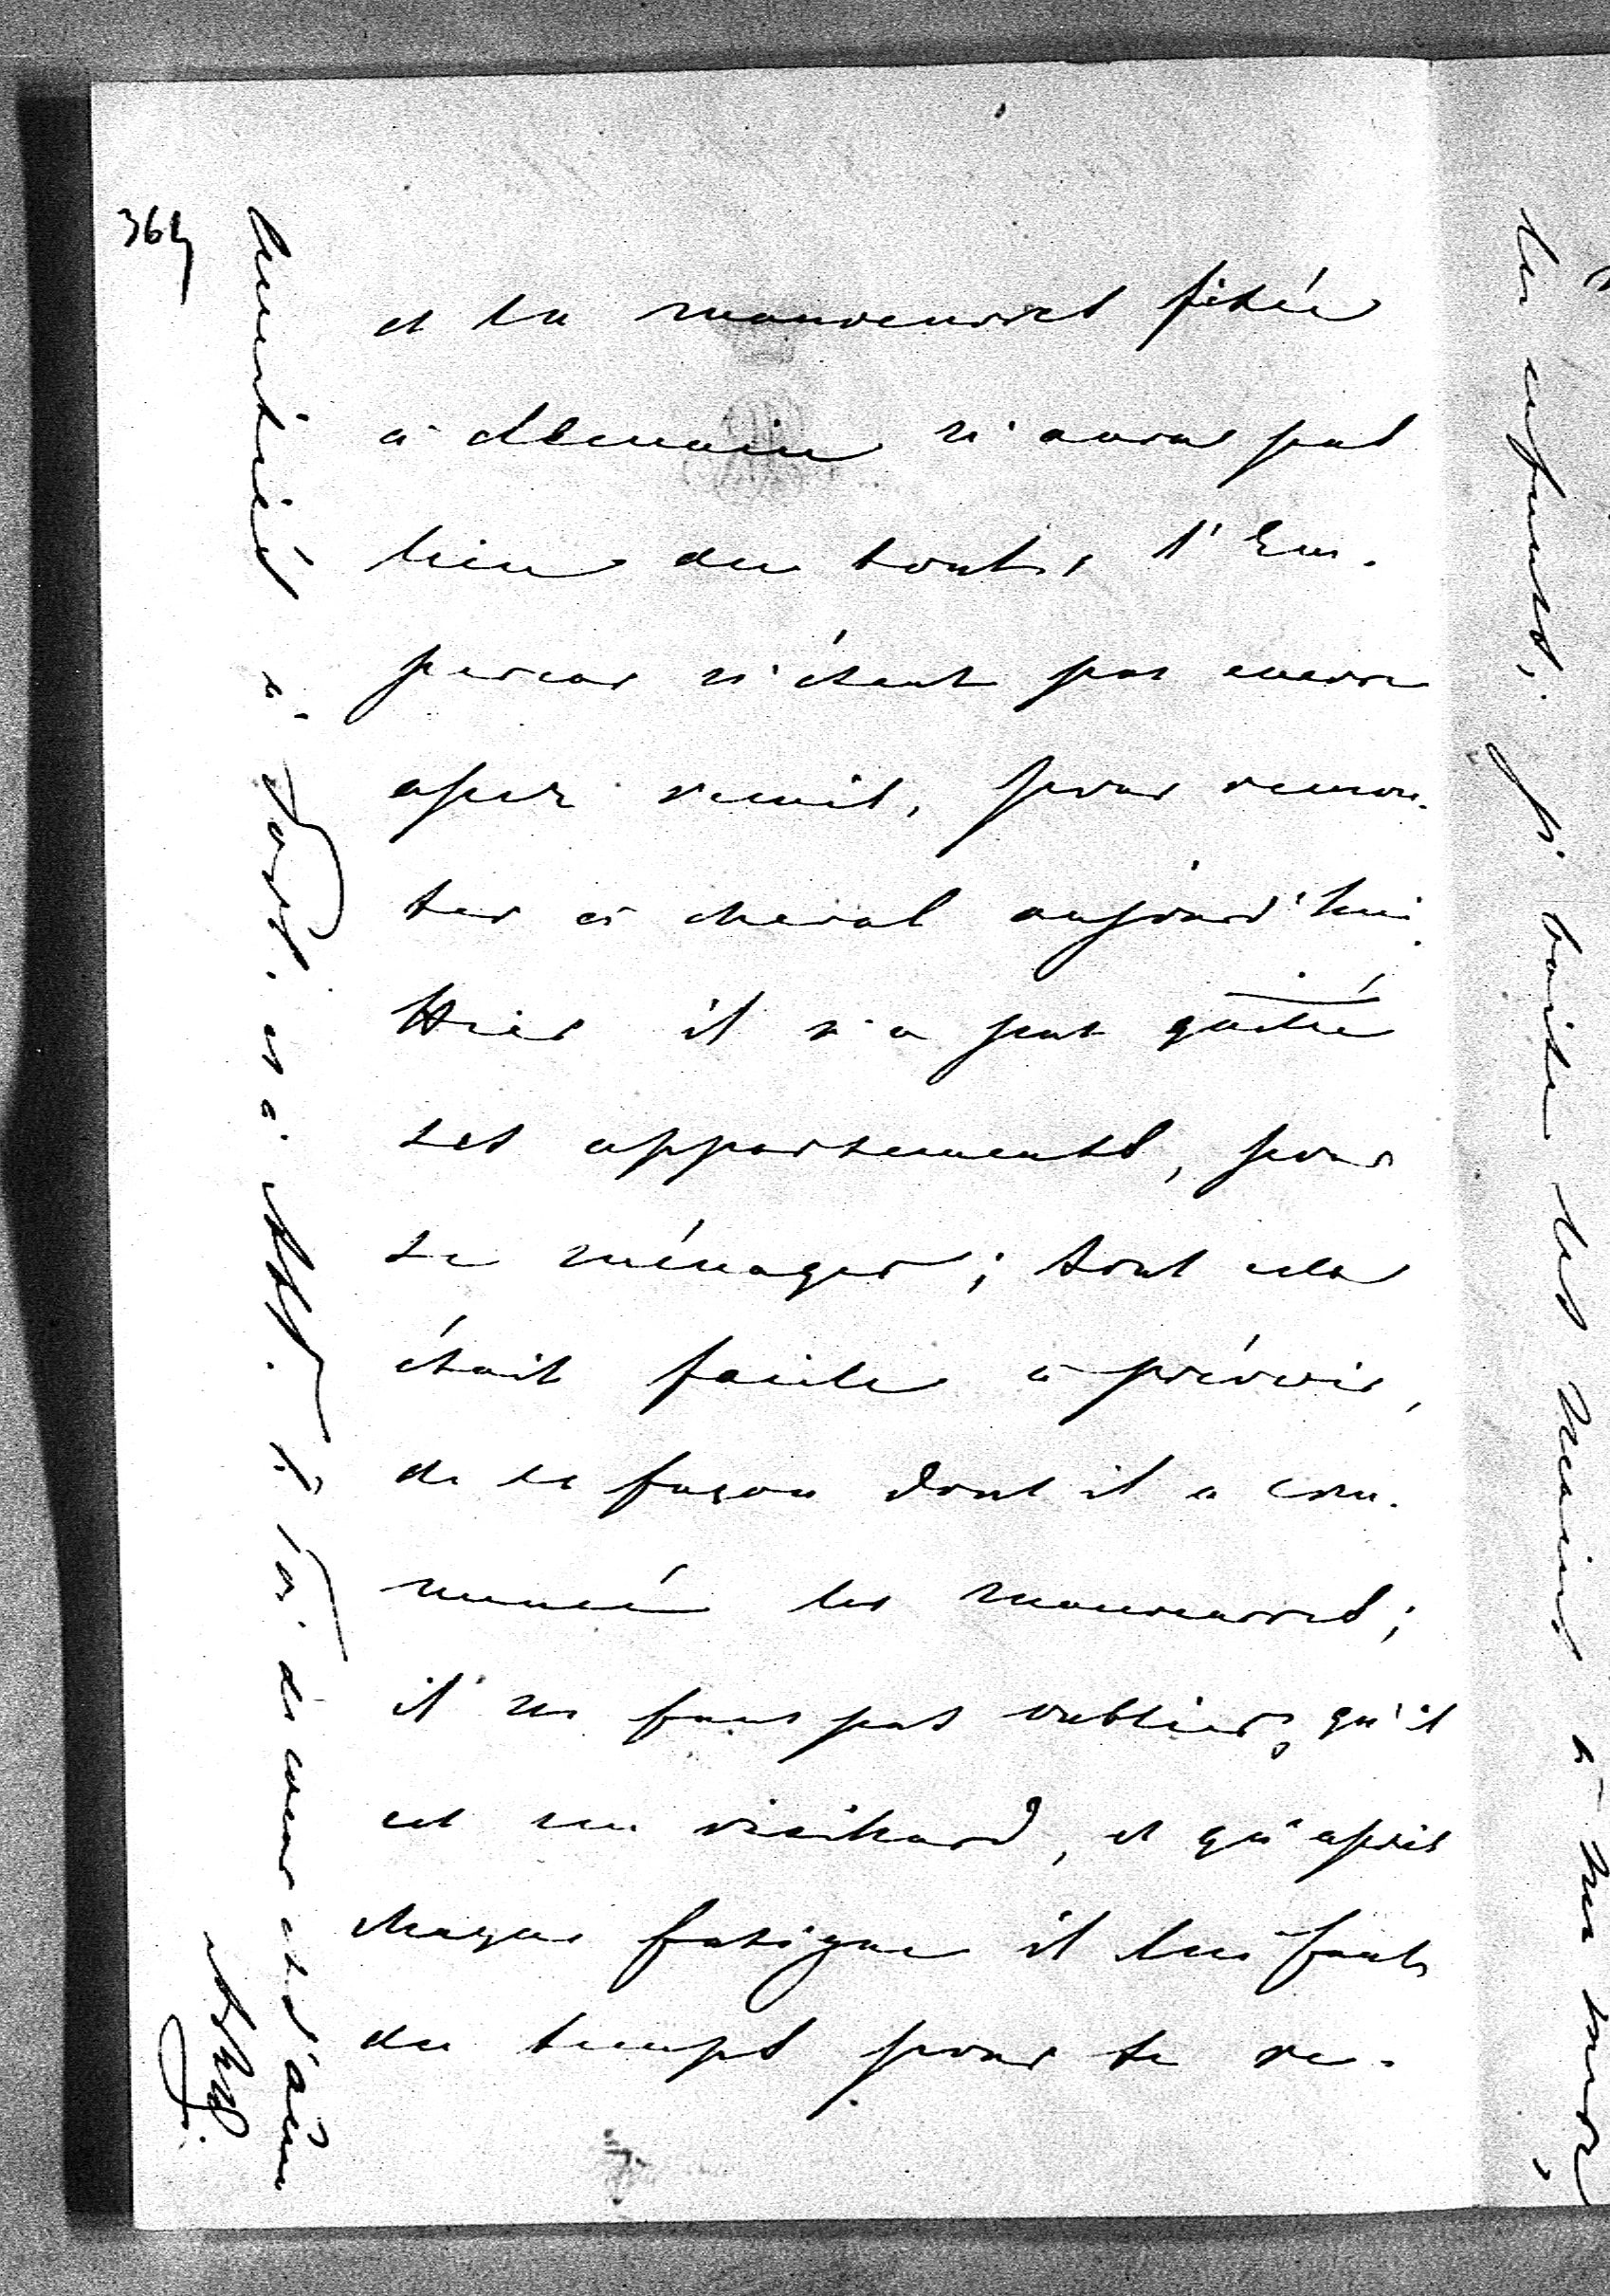 364
et la manoeuvres fixée
à demain n'aura pas
lieu du tout, l'Em-
pereur n'étant pas encore
assez remis, pour remon-
ter à cheval aujourd'hui.
Hier il n'a pas quitté
ses appartements, pour
se ménager; tout cela
était facile à prévoir,
de la façon dont il a com-
mencé les manoeuvres;
il ne faut pas oublier, qu'il
est un vieillard, et qu'après
chaque fatigue il lui faut
du temps pour se re-
amitiés à et à à Toi de coeur et d'âme
les enfants; je baise les mains à